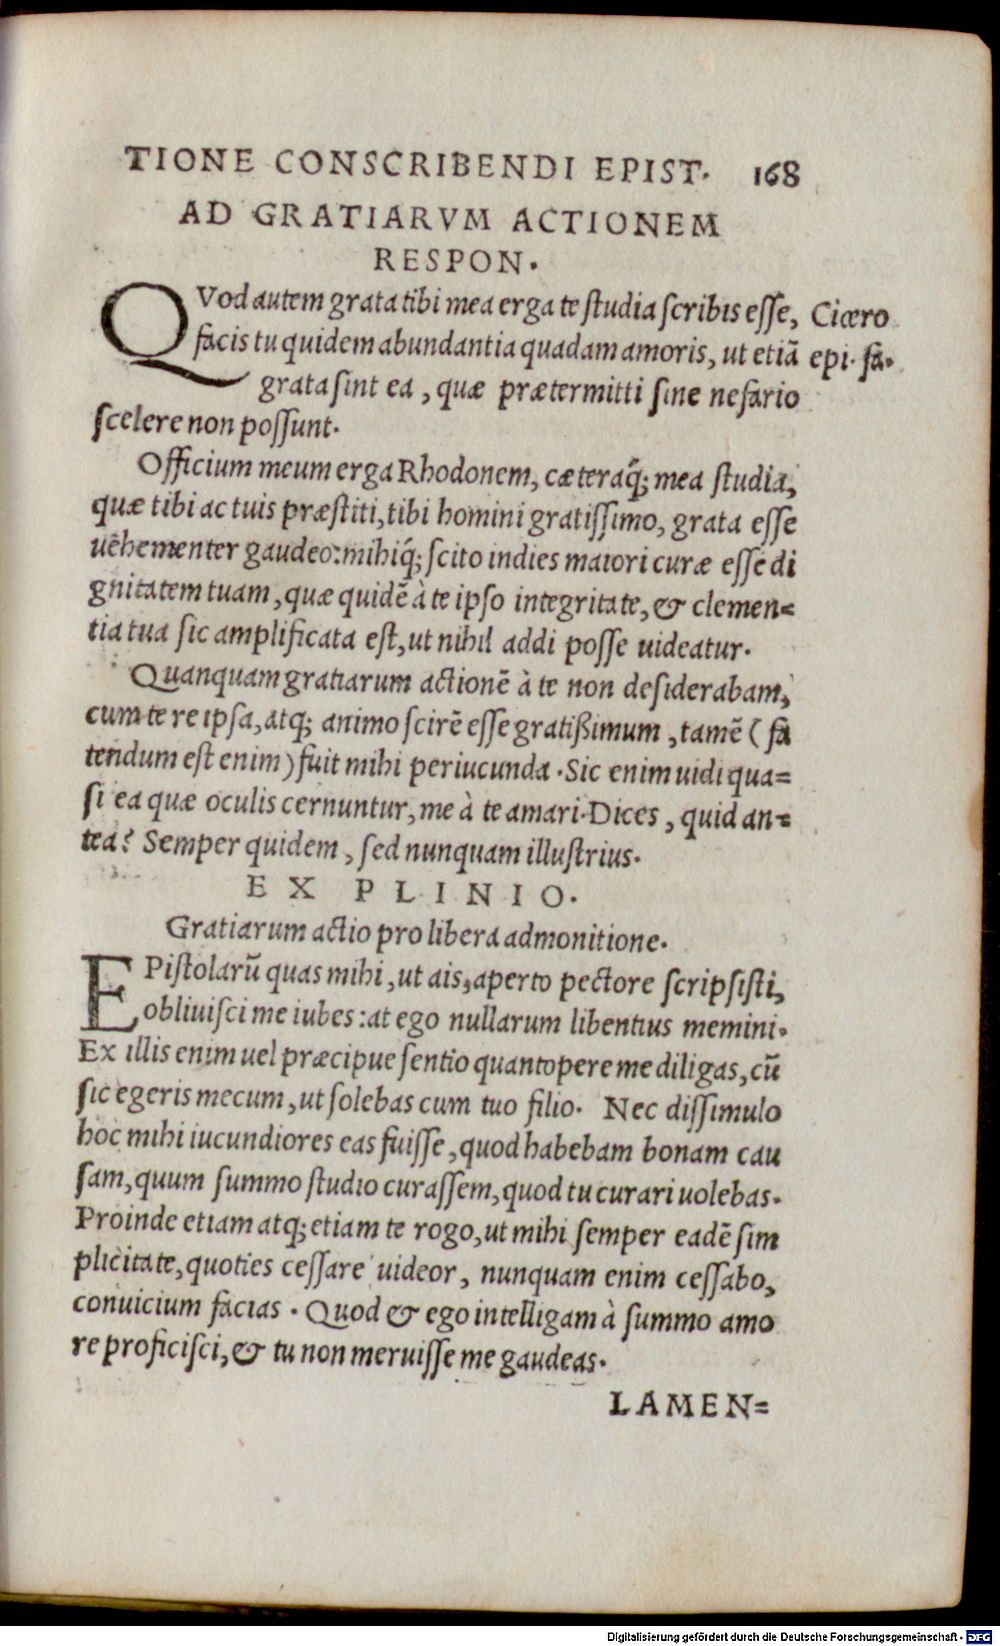 TIONE CONSCRIBENDI EPIST. 168
AD GRATIARVM ACTIONEM
RESPON.
QVod autem grata tibi mea erga te ſtudia ſcribis eſſe, Cicero
facis tu quidem abundantia quadam amoris, ut etiā epi. fa.
grata ſint ea, quæ prætermitti ſine nefario
ſcelere non poſſunt.
Officium meum erga Rhodonem, cæteraq́; mea ſtudia,
quæ tibi ac tuis præſtiti, tibi homini gratiſſimo, grata eſſe
uehementer gaudeo: mihiq́; ſcito indies maiori curæ eſſe di
gnitatem tuam, quæ quidē à te ipſo integritate, & clemen=
tia tua ſic amplificata eſt, ut nihil addi poſſe uideatur.
Quanquam gratiarum actionē à te non deſiderabam,
cum te re ipſa, atq; animo ſcirē eſſe gratißimum, tamē (fa
tendum eſt enim) fuit mihi periucunda. Sic enim uidi qua=
ſi ea quæ oculis cernuntur, me à te amari. Dices, quid an=
tea? Semper quidem, ſed nunquam illuſtrius.
EX PLINIO.
Gratiarum actio pro libera admonitione.
EPiſtolarū quas mihi, ut ais, aperto pectore ſcripſiſti,
obliuiſci me iubes: at ego nullarum libentius memini.
Ex illis enim uel præcipue ſentio quantopere me diligas, cū
ſic egeris mecum, ut ſolebas cum tuo filio. Nec diſſimulo
hoc mihi iucundiores eas fuiſſe, quod habebam bonam cau
ſam, quum ſummo ſtudio curaſſem, quod tu curari uolebas.
Proinde etiam atq; etiam te rogo, ut mihi ſemper eadē ſim
plicitate, quoties ceſſare uideor, nunquam enim ceſſabo,
conuicium facias. Quod & ego intelligam à ſummo amo
re proficiſci, & tu non meruiſſe me gaudeas.
LAMEN=
Digitalisierung gefördert durch die Deutsche Forschungsgemeinschaft - DFG